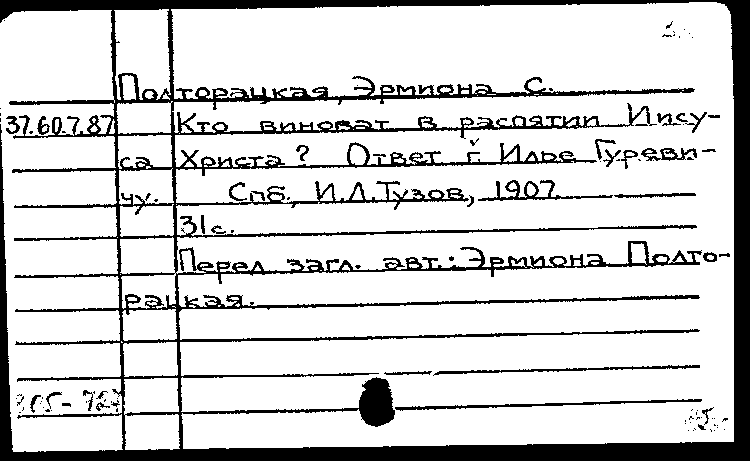 Полторацкая, Эрмиона С.
37.60.7.87
Кто виноват в распятии Иису-
са Христа? Ответ г. Илье Гуреви-
чу. Спб., И.Л.Тузов, 1907.
31с.
Перед загл. авт.: Эрмиона Полто-
рацкая.
305-727